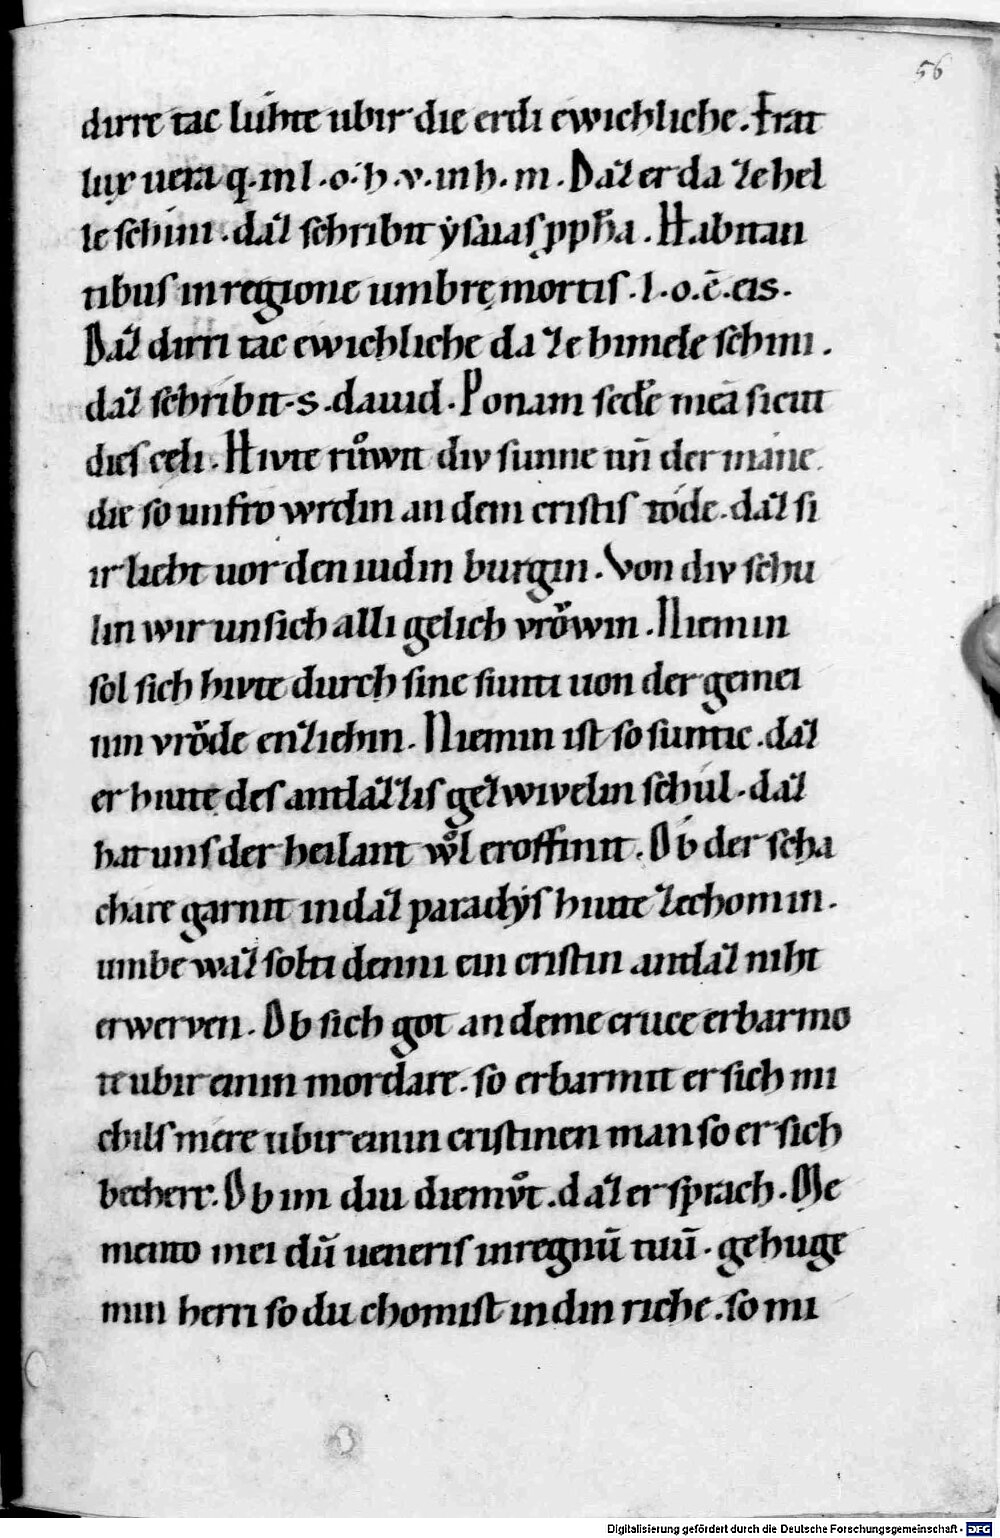 56
dirre tac luhte ubir die erdi ewichliche. Erat
lux uera q. in l. o. h. v. in h. m. Daz er da ze hel
le schini. daz schribit ẏsaias ꝓpħa. Habitan
tibus in regione umbrę mortis. l. o. ē. eis.
Daz dirri tac ewichliche da ze himele schini.
daz schribit. s. dauid. Ponam sedē meā sicut
dies cęli. Hivte růwit div sunne uñ der mane
die so unfro wrdin an dem cristis tode. daz si
ir lieht uor den iudin burgin. Von div schu
lin wir unsich alli gelich vrǒwin. Niemin
sol sich hivte durch sine sunti uon der gemei
nin vrǒde enziehin. Niemin ist so suntic. daz
er hiute des antlazzis gezwivelin schul. daz
hat uns der heilant wol eroffinit. Ob der scha
chare garnit in daz paradẏs hiute ze chomin.
umbe waz solti denni ein cristin antlaz niht
erwerven. Ob sich got an deme cruce erbarmo
te ubir einin mordare. so erbarmit er sich mi
chils mere ubir einin cristinen man so er sich
bechert. Ob im diu diemůt. daz er sprach. Me
mento mei dū ueneris in regnū tuū. gehuge
min herri so du chomist in din riche. so mi
Digitalisierung gefördert durch die Deutsche Forschungsgemeinschaft - DFG